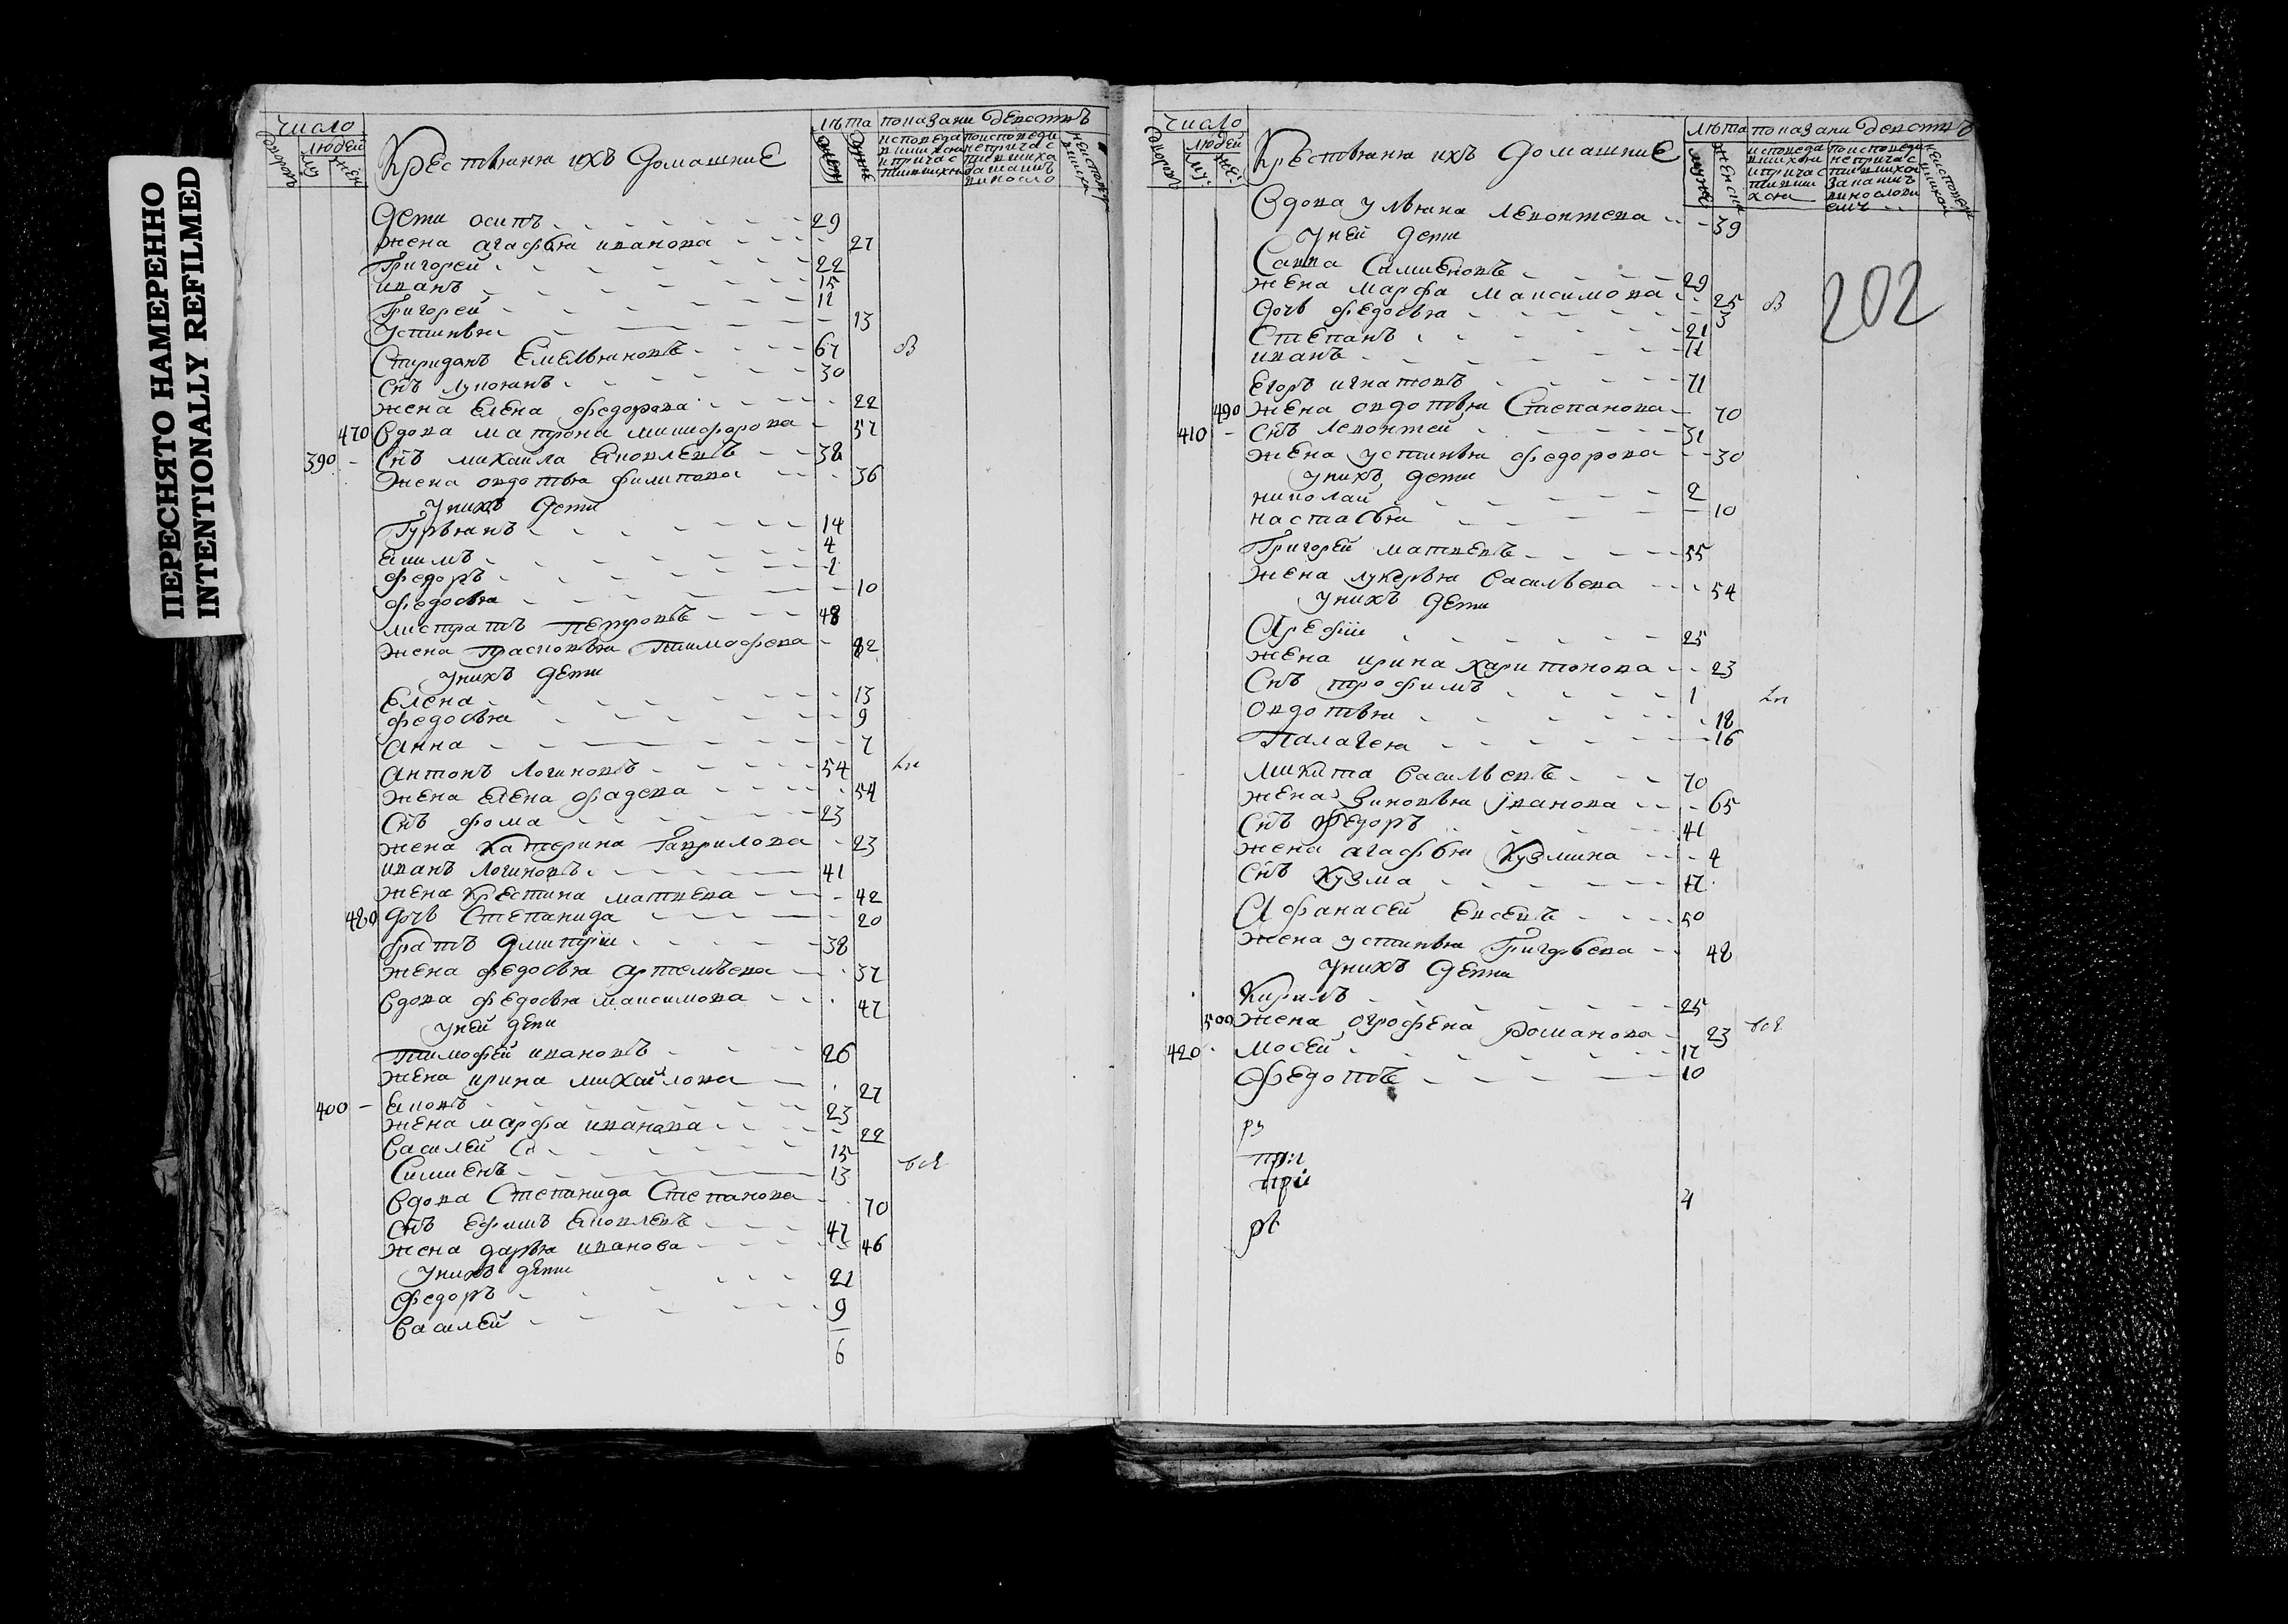 ПЕРЕСНЯТО НАМЕРЕННО
INTENTIONALLY REFILMED
число
людей
лѣта показани действъ
Крестьяня ихъ домашние
дети осипъ 29
жена агафья иванова 27
Григорей 22
иванъ 15
Григорей 11
Устинья 13
Спиридонъ Емельяновъ 67
снъ лукьянъ 30
жена Елена федорова 22
470 вдова матрона никифорова 57
390 снъ михайла Яковлевъ 38
жена овдотья филипова 36
у нихъ дети
Гурьянъ 14
Якимъ 4
федоръ 1
федосья 10
листратъ петровъ 48
жена прасковья тимофева 82
у нихъ дети
Елена 13
федосья 9
анна 7
антонъ логиновъ 54
жена Елена фадева 54
снъ фома 23
жена Катерина Гаврилова 23
иванъ логиновъ 41
жена Крестина матвева 42
480 дочь Степанида 20
братъ дмитрiй 38
жена федосья артемьева 37
вдова федосья максимова 47
у ней дети
тимофей ивановъ 26
жена ирина михайлова 27
400 Яковъ 23
жена марфа иванова 22
василей 15
Симионъ 13
все
вдова Степанида Степанова 70
снъ Ефимъ Яковлевъ 47
жена дарья иванова 46
у нихъ дети
федоръ 21
василей 9
6
число
людей
лѣта показани действъ
Крестьяня ихъ домашние
вдова ульяна левонтева 39
у ней дети
Савва Симионовъ 29
жена марфа максимова 25
202
дочь федосья 3
Степанъ 21
иванъ 11
Егоръ игнатовъ 71
490 жена овдотья Степанова 70
410 снъ левонтей 31
жена устинья федорова 30
у нихъ дети
николай 2
настасья 10
Григорей матвевъ 55
жена лукерья васильева 54
у нихъ дети
Арефiй 25
жена ирина харитонова 23
снъ трофимъ 1
овдотья 18
Палагея 16
микита васильевъ 70
жена Зиновья iванова 65
снъ федоръ 41
жена агафья Кузмина 4
снъ Кузма 17
Афанасей Евсевъ 50
жена устинья Григорьева 48
у нихъ дети
Кирилъ 25
500 жена огрофена романова 23
все
420 мосей 17
федотъ 10
ру
при
при
4